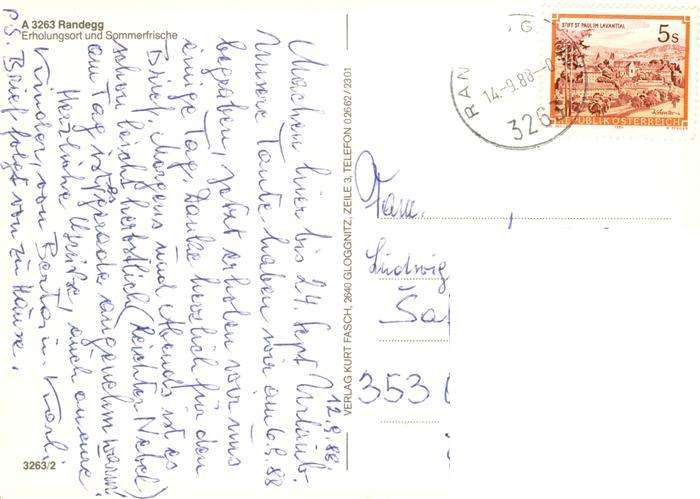 A 3263 Randegg
Erholungsort und Sommerfrische
12.9.88
Machen hier bis 24. Sept. Urlaub.
Unsere Tante haben wir am 6.9.88
begraben, jetzt erholen wir uns
einige Tag. Danke herzlich für den
Brief. Morgens und Abends ist es
schon leicht herbstlich (leichter Nebel)
am Tag ist es gerade angenehm warm.
Herzliche Grüße, auch an eure
Kinder, von Berta u. Karl.
P.S. Brief folgt von zu Hause.
3263/2
VERLAG KURT FASCH, 2640 GLOGGNITZ, ZEILE 3, TELEFON 02662/2301
STIFT ST. PAUL IM LAVANTTAL
5 S
REPUBLIK ÖSTERREICH
14.-9.88-
326
Fam.
Ludwig
353